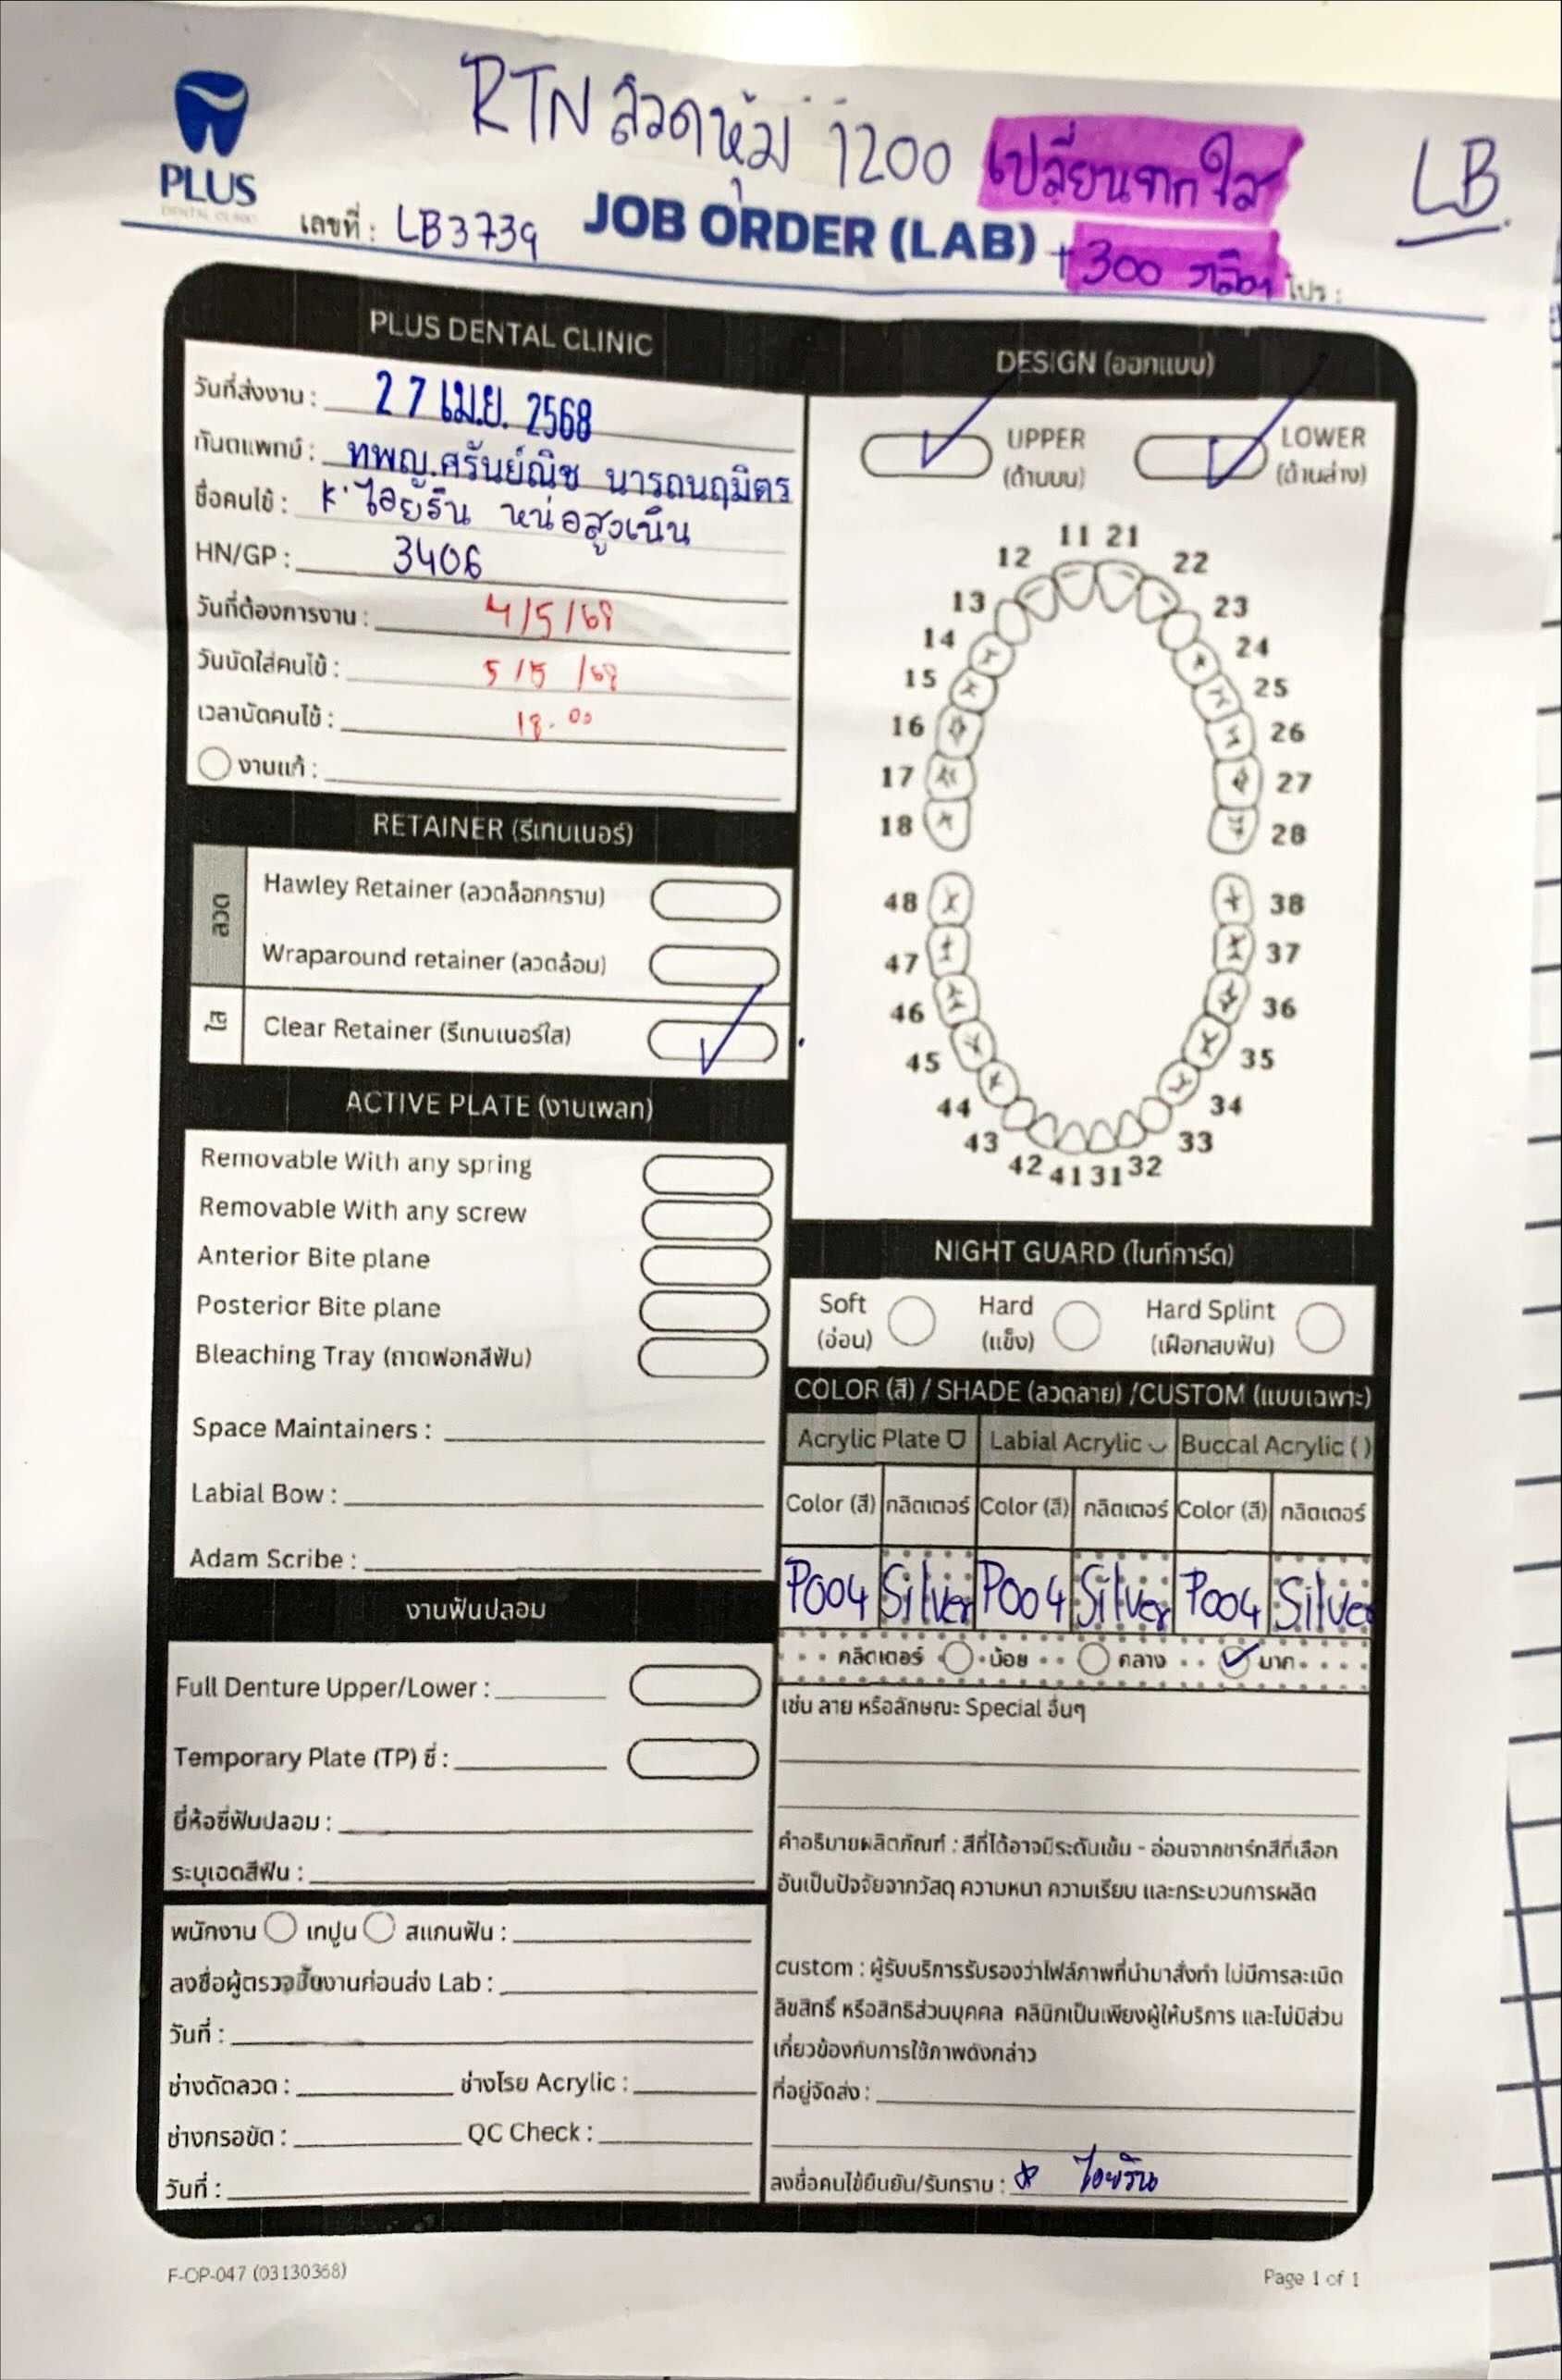 RTN ลวดหุ้ม 1200 เปลี่ยนจากใส
LB
PLUS
DENTAL CLINIC
เลขที่ : LB3739
JOB ORDER (LAB)
+300 กลิตเ
โปร :
PLUS DENTAL CLINIC
วันที่ส่งงาน : 27 เม.ย. 2568
ทันตแพทย์ : ทพญ.ศรันย์ณิช นารถนฤมิตร
ชื่อคนไข้ : K. ไอยริน หน่อสูงเนิน
HN/GP : 3406
วันที่ต้องการงาน : 4/5/68
วันนัดใส่คนไข้ : 5/5/68
เวลานัดคนไข้ : 18.00
งานแก้ :
RETAINER (รีเทนเนอร์)
ลวด
Hawley Retainer (ลวดล็อกกราม)
Wraparound retainer (ลวดล้อม)
ใส
Clear Retainer (รีเทนเนอร์ใส)
ACTIVE PLATE (งานเพลท)
Removable With any spring
Removable With any screw
Anterior Bite plane
Posterior Bite plane
Bleaching Tray (ถาดฟอกสีฟัน)
Space Maintainers :
Labial Bow :
Adam Scribe :
งานฟันปลอม
Full Denture Upper/Lower :
Temporary Plate (TP) ซี่ :
ยี่ห้อซี่ฟันปลอม :
ระบุเฉดสีฟัน :
พนักงาน เทปูน สแกนฟัน :
ลงชื่อผู้ตรวจชิ้นงานก่อนส่ง Lab :
วันที่ :
ช่างดัดลวด : ช่างโรย Acrylic :
ช่างกรอขัด : QC Check :
วันที่ :
DESIGN (ออกแบบ)
UPPER
(ด้านบน)
LOWER
(ด้านล่าง)
11 21
12 22
13 23
14 24
15 25
16 26
17 27
18 28
48 38
47 37
46 36
45 35
44 34
43 33
42 41 31 32
NIGHT GUARD (ไนท์การ์ด)
Soft Hard Hard Splint
(อ่อน) (แข็ง) (เฝือกสบฟัน)
COLOR (สี) / SHADE (ลวดลาย) /CUSTOM (แบบเฉพาะ)
Acrylic Plate Labial Acrylic Buccal Acrylic ( )
Color (สี) กลิตเตอร์ Color (สี) กลิตเตอร์ Color (สี) กลิตเตอร์
P004 Silver P004 Silver P004 Silver
กลิตเตอร์ น้อย กลาง มาก
เช่น ลาย หรือลักษณะ Special อื่นๆ
คำอธิบายผลิตภัณฑ์ : สีที่ได้อาจมีระดับเข้ม - อ่อนจากชาร์ทสีที่เลือก
อันเป็นปัจจัยจากวัสดุ ความหนา ความเรียบ และกระบวนการผลิต
custom : ผู้รับบริการรับรองว่าไฟล์ภาพที่นำมาสั่งทำ ไม่มีการละเมิด
ลิขสิทธิ์ หรือสิทธิส่วนบุคคล คลินิกเป็นเพียงผู้ให้บริการ และไม่มีส่วน
เกี่ยวข้องกับการใช้ภาพดังกล่าว
ที่อยู่จัดส่ง :
ลงชื่อคนไข้ยืนยัน/รับทราบ : ไอยริน
F-OP-047 (03130368)
Page 1 of 1